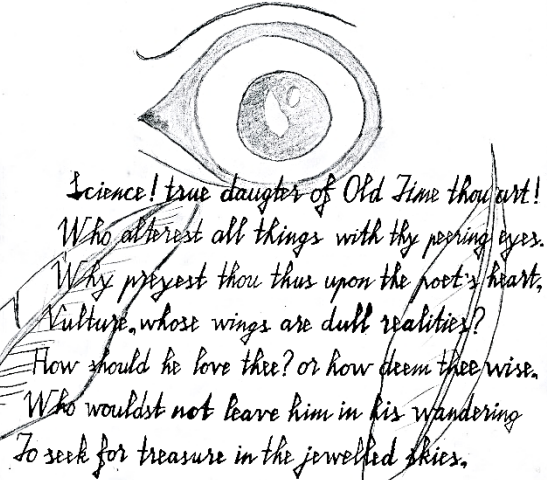 Science! true daugter of Old Time thou art!
Who alterest all things with thy peering eyes.
Why preyest thou thus upon the poet's heart,
Vulture, whose wings are dull realities?
How should he love thee? or how deem thee wise.
Who wouldst not leave him in his wandering
To seek for treasure in the jewelled skies.